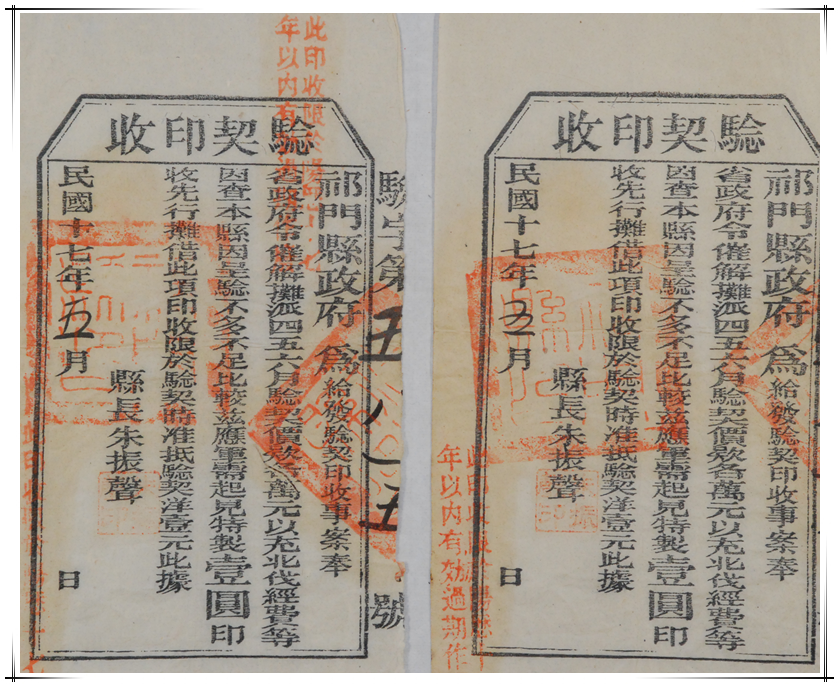 收印契驗
祁門縣政府為給發驗契印收事案奉
省政府令催解攤派四五六月驗契價款各萬元以充北伐經費等
因查本縣因呈驗不多不足比較茲應軍需起見特製壹圓印
收先行攤借此項印收限於驗契時准抵驗契洋壹元此據
縣長朱振聲
民國十七年五月 日
驗字第五八五號
此印收限於陽曆
年以內有
收印契驗
祁門縣政府為給發驗契印收事案奉
省政府令催解攤派四五六月驗契價款各萬元以充北伐經費等
因查本縣因呈驗不多不足比較茲應軍需起見特製壹圓印
收先行攤借此項印收限於驗契時准抵驗契洋壹元此據
縣長朱振聲
民國十七年五月 日
此印收限於陽曆
年以內有効過期作